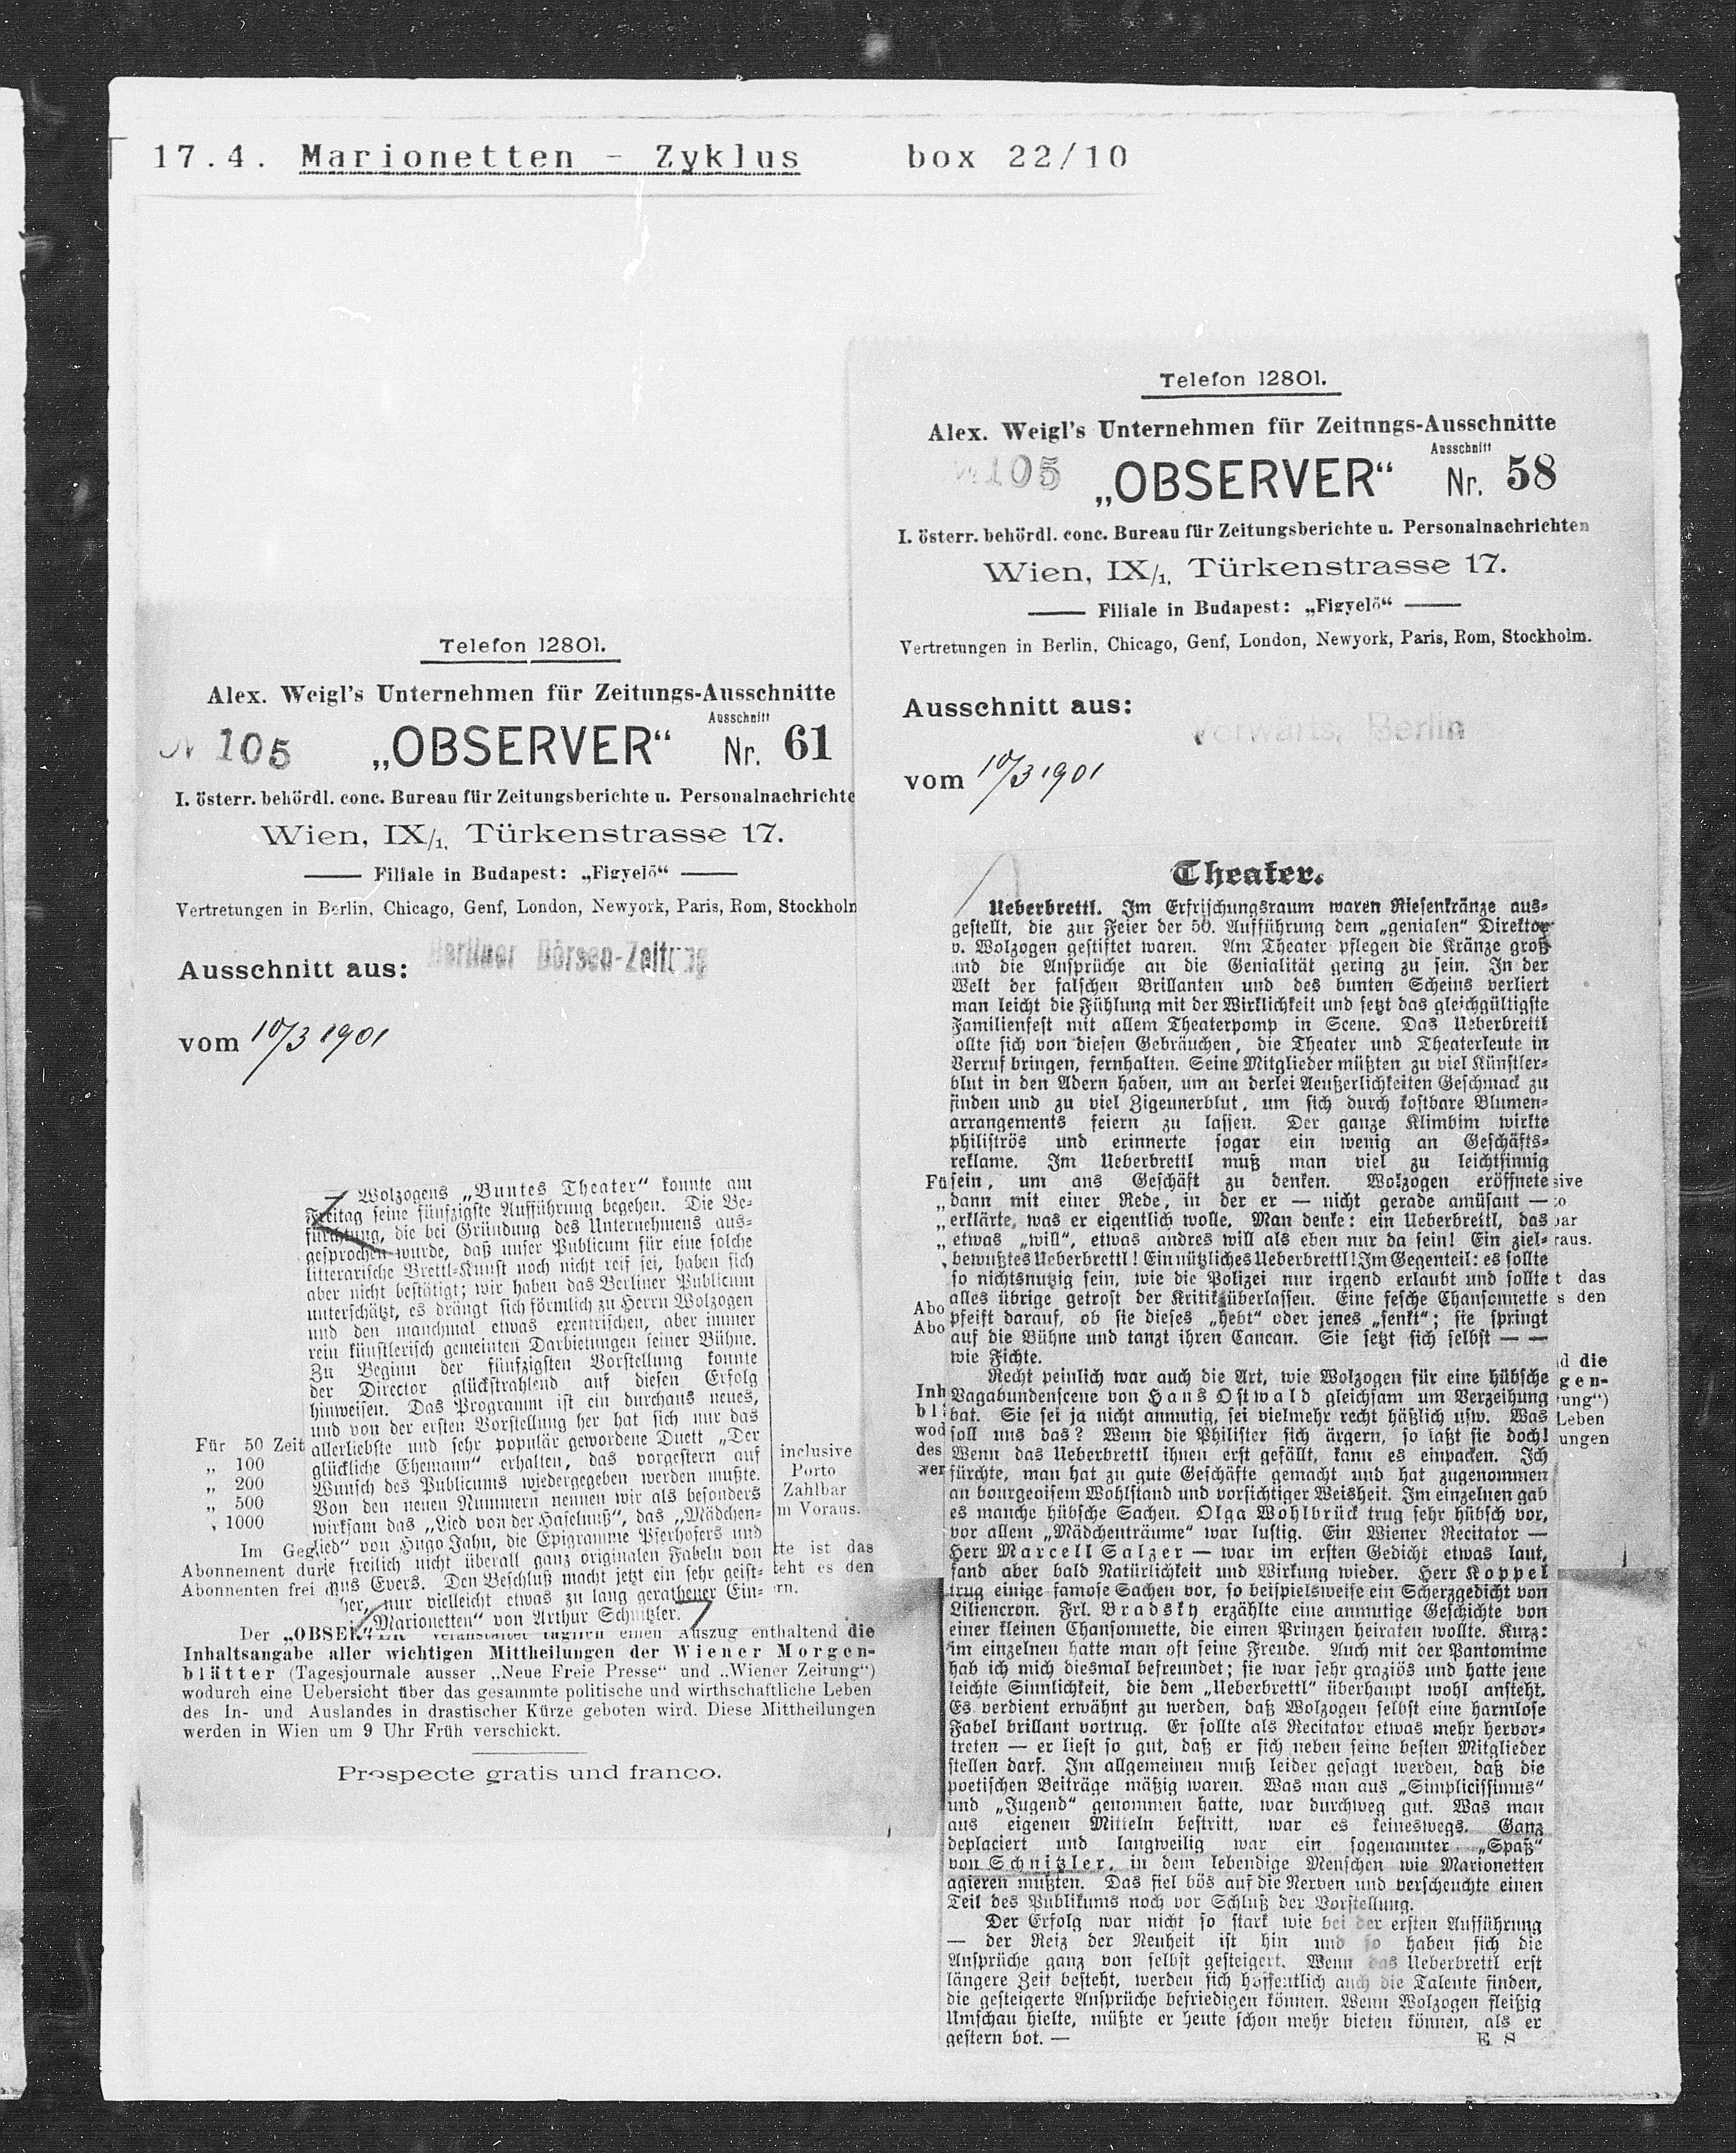 17.4. Marionetten - Zyklus box 22/10
Telefon 12801.
Alex. Weigl's Unternehmen für Zeitungs-Ausschnitte
N 105 „OBSERVER“ Ausschnitt Nr. 61
I. österr. behördl. conc. Bureau für Zeitungsberichte u. Personalnachrichte
Wien, IX/1, Türkenstrasse 17.
Filiale in Budapest: „Figyelő“
Vertretungen in Berlin, Chicago, Genf, London, Newyork, Paris, Rom, Stockholm
Ausschnitt aus: Berliner Börsen-Zeitung
vom 10/3 1901
Wolzogens „Buntes Theater“ konnte am
Freitag seine fünfzigste Aufführung begehen. Die Be-
fürchtung, die bei Gründung des Unternehmens aus-
gesprochen wurde, daß unser Publicum für eine solche
litterarische Brettl-Kunst noch nicht reif sei, haben sich
aber nicht bestätigt; wir haben das Berliner Publicum
unterschätzt, es drängt sich förmlich zu Herrn Wolzogen
und den manchmal etwas excentrischen, aber immer
rein künstlerisch gemeinten Darbietungen seiner Bühne.
Zu Beginn der fünfzigsten Vorstellung konnte
der Director glückstrahlend auf diesen Erfolg
hinweisen. Das Programm ist ein durchaus neues,
und von der ersten Vorstellung her hat sich nur das
allerliebste und sehr populär gewordene Duett „Der
glückliche Ehemann“ erhalten, das vorgestern auf
Wunsch des Publicums wiedergegeben werden mußte.
Von den neuen Nummern nennen wir als besonders
wirksam das „Lied von der Haselnuß“, das „Mädchen-
lied“ von Hugo Jahn, die Epigramme Pserhofers und
die freilich nicht überall ganz originalen Fabeln von
Evers. Den Beschluß macht jetzt ein sehr geist-
her, nur vielleicht etwas zu lang gerathener Ein-
„Marionetten“ von Arthur Schnitzler.
Für 50 Zeit
„ 100
„ 200
„ 500
„ 1000
inclusive
Porto
Zahlbar
im Voraus.
Im Geg
tte ist das
Abonnement dur
teht es den
Abonnenten frei
ern.
Der „OBSERVER“ veranstaltet täglich einen Auszug enthaltend die
Inhaltsangabe aller wichtigen Mittheilungen der Wiener Morgen-
blätter (Tagesjournale ausser „Neue Freie Presse“ und „Wiener Zeitung“)
wodurch eine Uebersicht über das gesammte politische und wirthschaftliche Leben
des In- und Auslandes in drastischer Kürze geboten wird. Diese Mittheilungen
werden in Wien um 9 Uhr Früh verschickt.
Prospecte gratis und franco.
Telefon 12801.
Alex. Weigl's Unternehmen für Zeitungs-Ausschnitte
N 105 „OBSERVER“ Ausschnitt Nr. 58
I. österr. behördl. conc. Bureau für Zeitungsberichte u. Personalnachrichten
Wien, IX/1, Türkenstrasse 17.
Filiale in Budapest: „Figyelő“
Vertretungen in Berlin, Chicago, Genf, London, Newyork, Paris, Rom, Stockholm.
Ausschnitt aus: Vorwärts, Berlin
vom 10/3 1901
Theater.
Ueberbrettl. Im Erfrischungsraum waren Riesenkränze aus-
gestellt, die zur Feier der 50. Aufführung dem „genialen“ Direktor
v. Wolzogen gestiftet waren. Am Theater pflegen die Kränze groß
und die Ansprüche an die Genialität gering zu sein. In der
Welt der falschen Brillanten und des bunten Scheins verliert
man leicht die Fühlung mit der Wirklichkeit und setzt das gleichgültigste
Familienfest mit allem Theaterpomp in Scene. Das Ueberbrettl
ollte sich von diesen Gebräuchen, die Theater und Theaterleute in
Verruf bringen, fernhalten. Seine Mitglieder müßten zu viel Künstler-
blut in den Adern haben, um an derlei Aeußerlichkeiten Geschmack zu
finden und zu viel Zigeunerblut, um sich durch kostbare Blumen-
arrangements feiern zu lassen. Der ganze Klimbim wirkte
philiströs und erinnerte sogar ein wenig an Geschäfts-
reklame. Im Ueberbrettl muß man viel zu leichtsinnig
sein, um ans Geschäft zu denken. Wolzogen eröffnete
dann mit einer Rede, in der er — nicht gerade amüsant —
erklärte, was er eigentlich wolle. Man denke: ein Ueberbrettl, das
etwas „will“, etwas andres will als eben nur da sein! Ein ziel-
bewußtes Ueberbrettl! Ein nützliches Ueberbrettl! Im Gegenteil: es sollte
so nichtsnutzig sein, wie die Polizei nur irgend erlaubt und sollte
alles übrige getrost der Kritik überlassen. Eine fesche Chansonnette
pfeift darauf, ob sie dieses „hebt“ oder jenes „senkt“; sie springt
auf die Bühne und tanzt ihren Cancan. Sie setzt sich selbst — —
wie Fichte.
Recht peinlich war auch die Art, wie Wolzogen für eine hübsche
Vagabundenscene von Hans Ostwald gleichsam um Verzeihung
bat. Sie sei ja nicht anmutig, sei vielmehr recht häßlich usw. Was
soll uns das? Wenn die Philister sich ärgern, so laßt sie doch!
Wenn das Ueberbrettl ihnen erst gefällt, kann es einpacken. Ich
fürchte, man hat zu gute Geschäfte gemacht und hat zugenommen
an bourgeoisem Wohlstand und vorsichtiger Weisheit. Im einzelnen gab
es manche hübsche Sachen. Olga Wohlbrück trug sehr hübsch vor,
vor allem „Mädchenträume“ war lustig. Ein Wiener Recitator —
Herr Marcell Salzer — war im ersten Gedicht etwas laut,
fand aber bald Natürlichkeit und Wirkung wieder. Herr Koppel
trug einige famose Sachen vor, so beispielsweise ein Scherzgedicht von
Liliencron. Frl. Bradsky erzählte eine anmutige Geschichte von
einer kleinen Chansonnette, die einen Prinzen heiraten wollte. Kurz:
im einzelnen hatte man oft seine Freude. Auch mit der Pantomime
hab ich mich diesmal befreundet; sie war sehr graziös und hatte jene
leichte Sinnlichkeit, die dem „Ueberbrettl“ überhaupt wohl ansteht.
Es verdient erwähnt zu werden, daß Wolzogen selbst eine harmlose
Fabel brillant vortrug. Er sollte als Recitator etwas mehr hervor-
treten — er liest so gut, daß er sich neben seine besten Mitglieder
stellen darf. Im allgemeinen muß leider gesagt werden, daß die
poetischen Beiträge mäßig waren. Was man aus „Simplicissimus“
und „Jugend“ genommen hatte, war durchweg gut. Was man
aus eigenen Mitteln bestritt, war es keineswegs. Ganz
deplaciert und langweilig war ein sogenannter „Spaß“
von Schnitzler, in dem lebendige Menschen wie Marionetten
agieren mußten. Das fiel bös auf die Nerven und verscheuchte einen
Teil des Publikums noch vor Schluß der Vorstellung.
Der Erfolg war nicht so stark wie bei der ersten Aufführung
— der Reiz der Neuheit ist hin und so haben sich die
Ansprüche ganz von selbst gesteigert. Wenn das Ueberbrettl erst
längere Zeit besteht, werden sich hoffentlich auch die Talente finden,
die gesteigerte Ansprüche befriedigen können. Wenn Wolzogen fleißig
Umschau hielte, müßte er heute schon mehr bieten können, als er
gestern bot. — E S